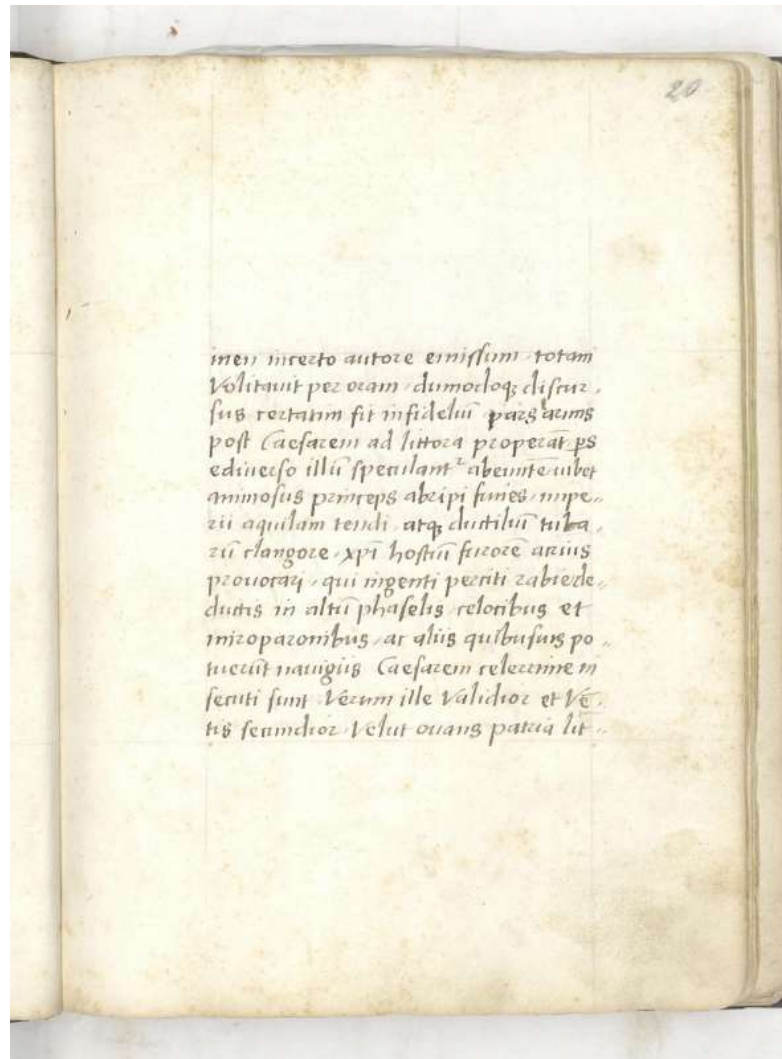 20
men incerto autore emissum · totam
Volitavit per oram · dumodoq; discur,
sus certatim fit infideliū pars armis
post Caesarem ad littora properāt ps
ediverso illū speculantᷣ abeuntē iubet
animosus princeps abripi funes · impe,,
rii aquilam tendi · atq; ductiliū tuba,
rū clangore · xpī hostiū furorē acrius
provocari · qui ingenti perciti rabie de,,
ductis in altū phaselis · celocibus et
miroparonibus · ac aliis quibusvis po,,
tuerūt navigiis Caesarem celerrime in
secuti sunt · Verum ille Validior et Vē,
tis secundior · Velut ovans patria lit,,